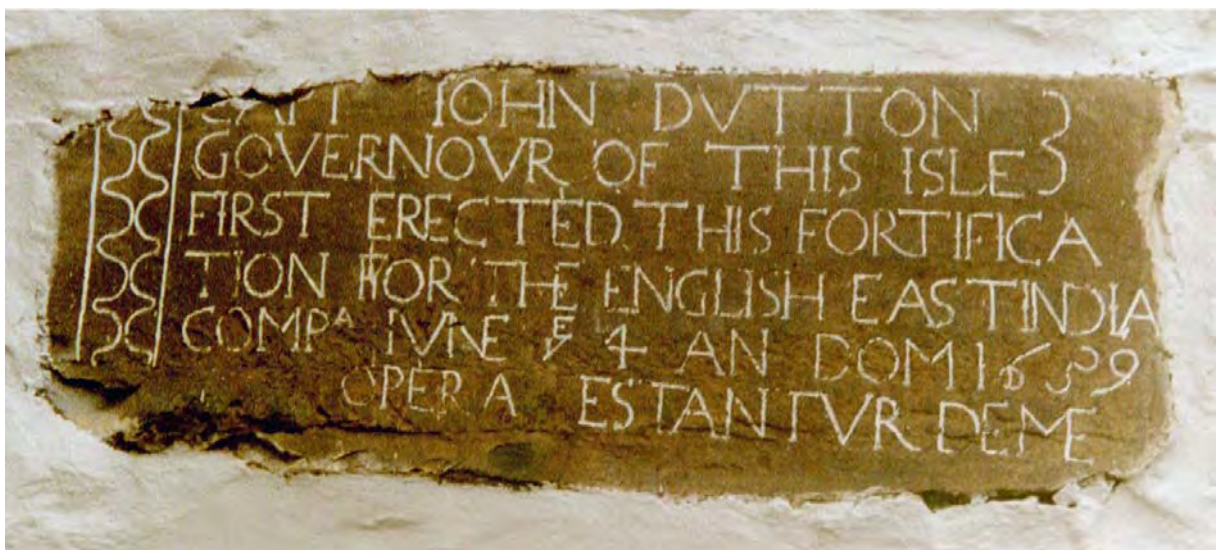 CAPT IOHN DVTTON
GOVERNOVR OF THIS ISLE
FIRST ERECTED THIS FORTIFICA
TION FOR THE ENGLISH EAST INDIA
IVNE 4 AN DOM 1659
OPERA ESTANTVR DE ME